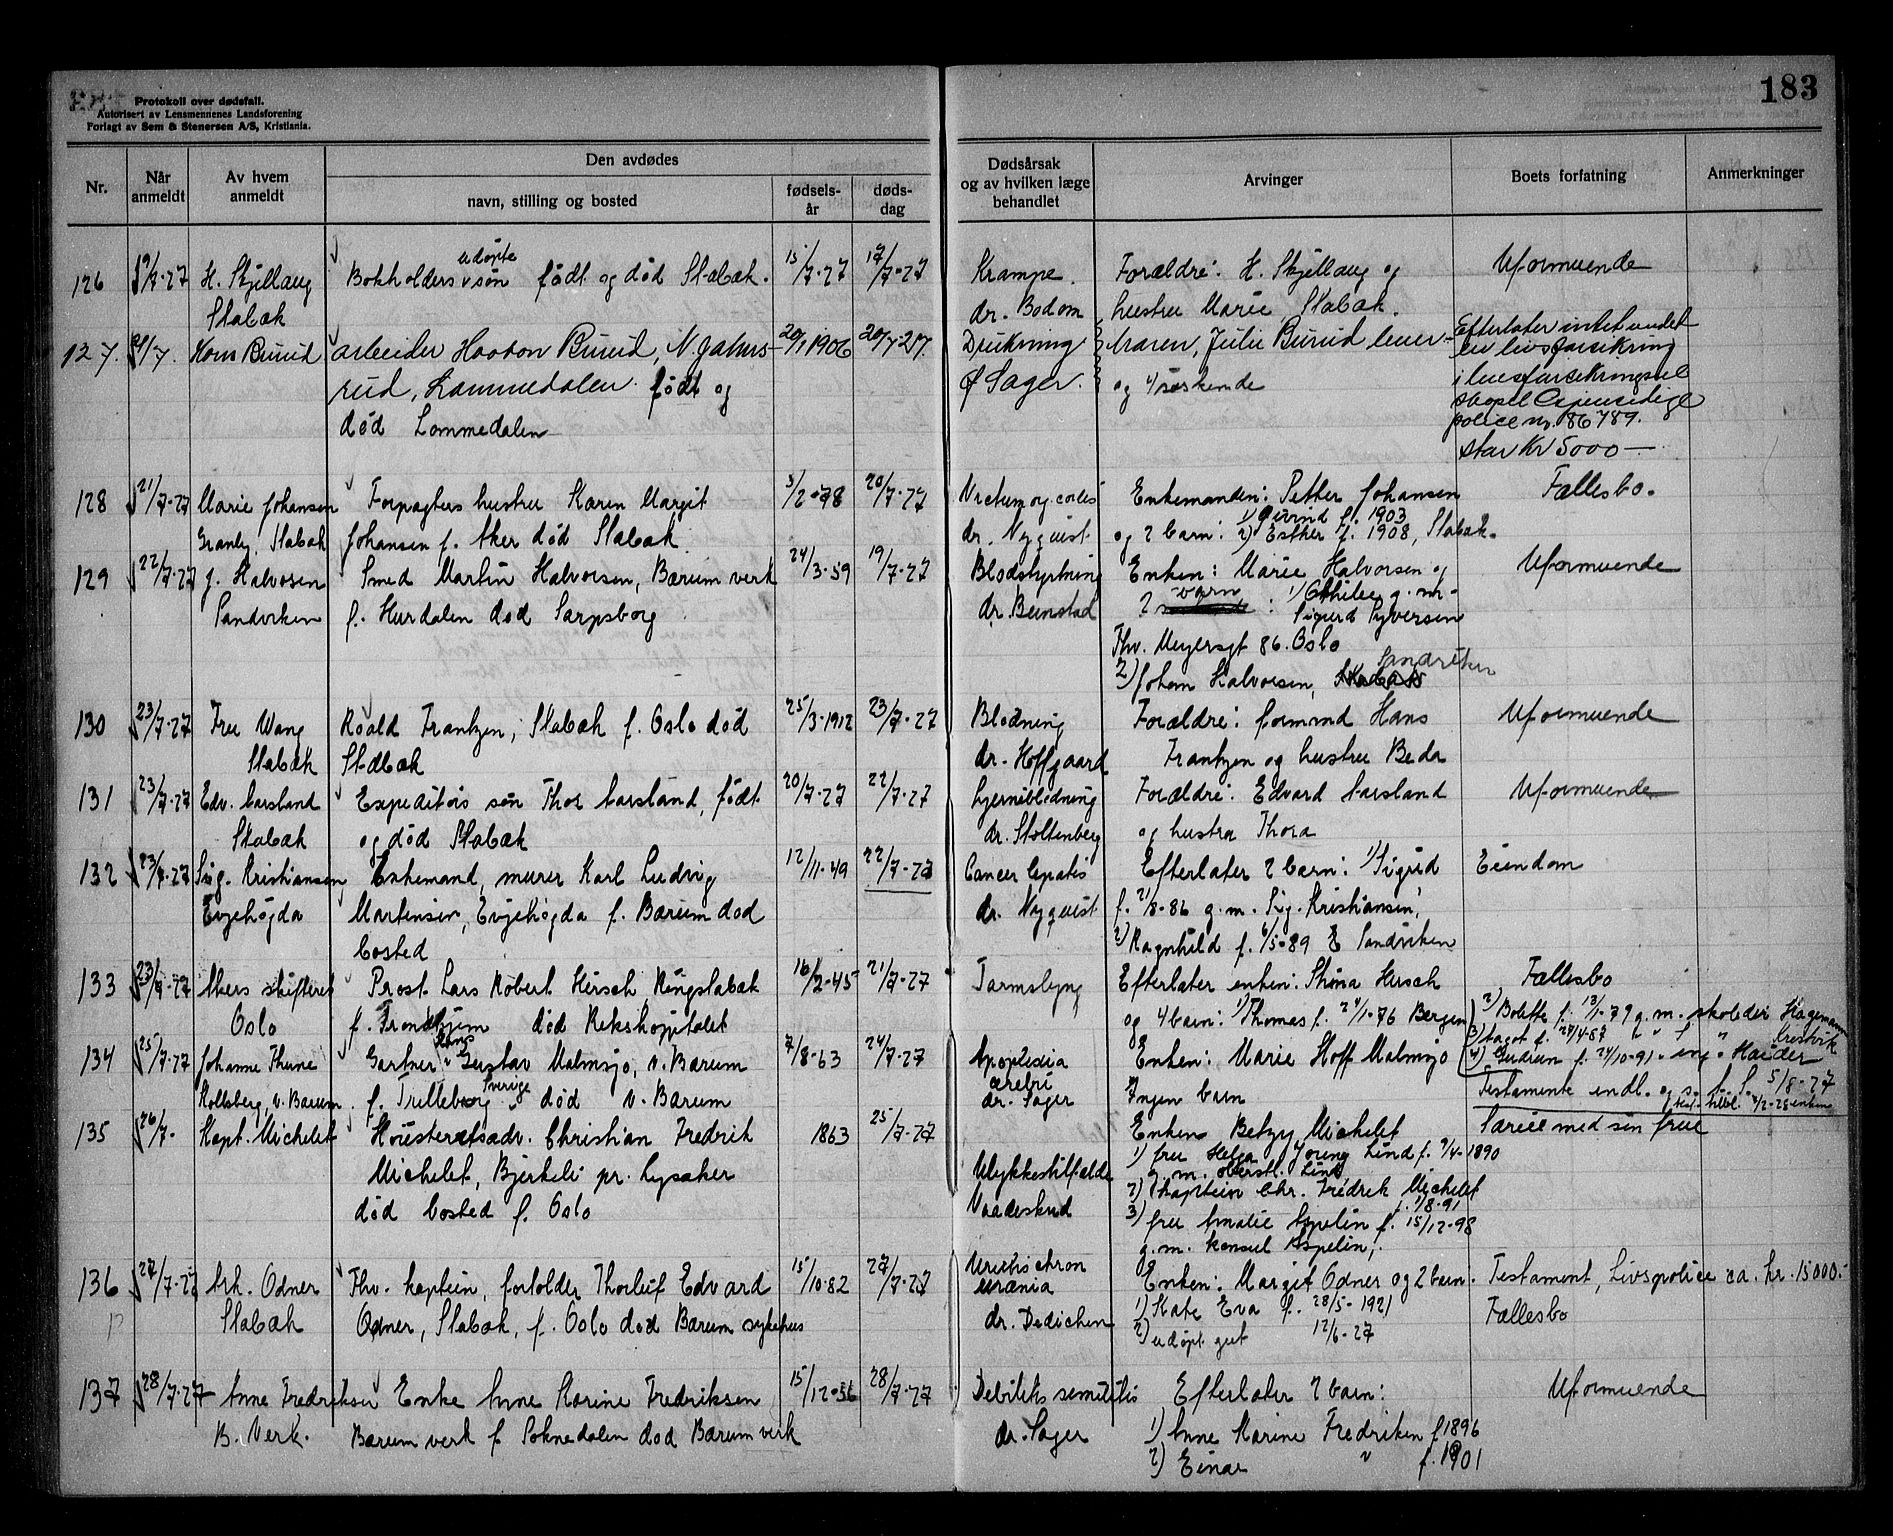 183
Protokoll over dødsfall.
Autorisert av Lensmennenes Landsforening
Forlagt av Sem & Stenersen A/S, Kristiania.
Nr.
Når anmeldt
Av hvem anmeldt
Den avdødes
navn, stilling og bosted
fødsels-år
døds-dag
Dødsårsak og av hvilken læge behandlet
Arvinger
Boets forfatning
Anmerkninger
126 19/7-27 H. Skjellaug Bokholders udøpte søn født og død Stabæk. 15/7-27 17/7-27 Krampe. Forældre: H. Skjellaug og Uformuende
Stabæk dr. Bodom hustru Marie, Stabæk.
127. 21/7. Hans Burud arbeider Haakon Burud, N. Jahns- 20/1 1906 20/7 27. Drukning Maren, Julie Burud Efterlater intet undet
rud, Lommedalen. født og Sager. og 4 søskende en livsforsikring
død Lommedalen
police no. 86789.
stor Kr 5000 —
128 21/7-27 Marie Johansen Forpagters hustru Karen Margit 3/2-78 20/7-27 Enkemanden: Petter Johansen Fællesbo.
Granly, Stabæk Johansen f. Aker død Stabæk dr. Nyquist og 2 barn: 1) Øivind f. 1903 2) Esther f. 1908, Stabæk.
129 22/7-27 J. Halvorsen Smed Martin Halvorsen, Bærum verk 24/3-59 19/7-27 Blodstyrtning Enken: Marie Halvorsen og Uformuende
Sandviken f. Hurdalen død Sarpsborg dr. Beinstad 2 barn : 1) Othilie g. m.
Sigurd Syversen
Thv. Meyersgt 86. Oslo
2) Johan Halvorsen, Sandviken
130 23/7-27 Fru Wang Roald Frantzen, Stabæk f. Oslo død 25/3-1912 23/7-27 Blødning Forældre: formand Hans Uformuende
Stabæk Stabæk dr. Hoffgaard Frantzen og hustru Beda
131 23/7-27 Edv. Aarsland Expeditørs søn Thor Aarsland, født 20/7-27 22/7-27 hjerneblødning Forældre: Edvard Aarsland Uformuende
Stabæk og død Stabæk dr. Stoltenberg og hustru Thora
132 23/7-27 Sig. Kristiansen Enkemand, murer Karl Ludvig 12/11-49 22/7-27 Cancer hepatis Efterlater 2 barn: 1) Sigrid Eiendom
Evjehøgda Martinsen, Evjehøgda f. Bærum død dr. Nyquist f. 21/8-86 g.m. Sig. Kristiansen,
bosted 2) Ragnhild f. 6/5-89 Sandviken
133 23/7-27 Akers skifteret Prost Lars Robert Hirsch, Ringstabæk 16/2-45 21/7-27 Tarmslyng Efterlater enken: Stina Hirsch Fællesbo
Oslo f. Trondhjem død Rikshospitalet og 4 barn: 1) Thomas f. 24/1-76 Bergen 2) Bolette f. 13/1-79 g.m. skoledir Hagemann
3) Aagot f. 24/4-87
4) Gudrun f. 24/10-91 - ing. Harder
134 25/7-27 Johanne Thune Gartner Hans Gustav Malmsjø, v. Bærum 7/8-63 24/7-27 Apoplexia Enken: Marie Hoff Malmsjø
Kolsberg, v. Bærum f. Trelleborg Sverige død v. Bærum cerebri dr. Sager Ingen barn Testamente indl. og s. 5/8-27
135 26/7- Kapt. Michelet Høiesteretsadv. Christian Fredrik 1863 25/7-27 Enken Betzy Michelet Særeie med sin frue
Michelet, Bjerkeli pr. Lysaker Ulykkestilfælde 1) fru Helga Young Lind f. 9/4-1890
g.m. oberstl. Lind
død bosted f. Oslo Vaadeskud 2) kaptein Chr. Fredrik Michelet f. 1/8-91
3) fru Amalie Aspelin f. 15/12-98
g.m. konsul Aspelin,
136 27/7-27 Ark. Odner Thv. kaptein, forfolder Thorleif Edvard 15/10-82 27/7-27 Uretitischron Enken: Margit Odner og 2 barn. Testament, Livspolice ca. kr. 15000.-
Stabæk Odner, Stabæk, f. Oslo død Bærum sykehus uræmia dr. Dedichen 1) Kate Eva f. 28/5-1921 Fællesbo
2) udøpt gut 12/6-27
137 28/7-27 Anne Fredriksen Enke Anne Karine Fredriksen 15/12-56 28/7-27 Debilitis senilitis Efterlater 2 barn: Uformuende
B. Verk. Bærum verk f. Soknedalen død Bærum verk dr. Sager 1) Anne Karine Fredriksen f 1896
2) Einar " f. 1901